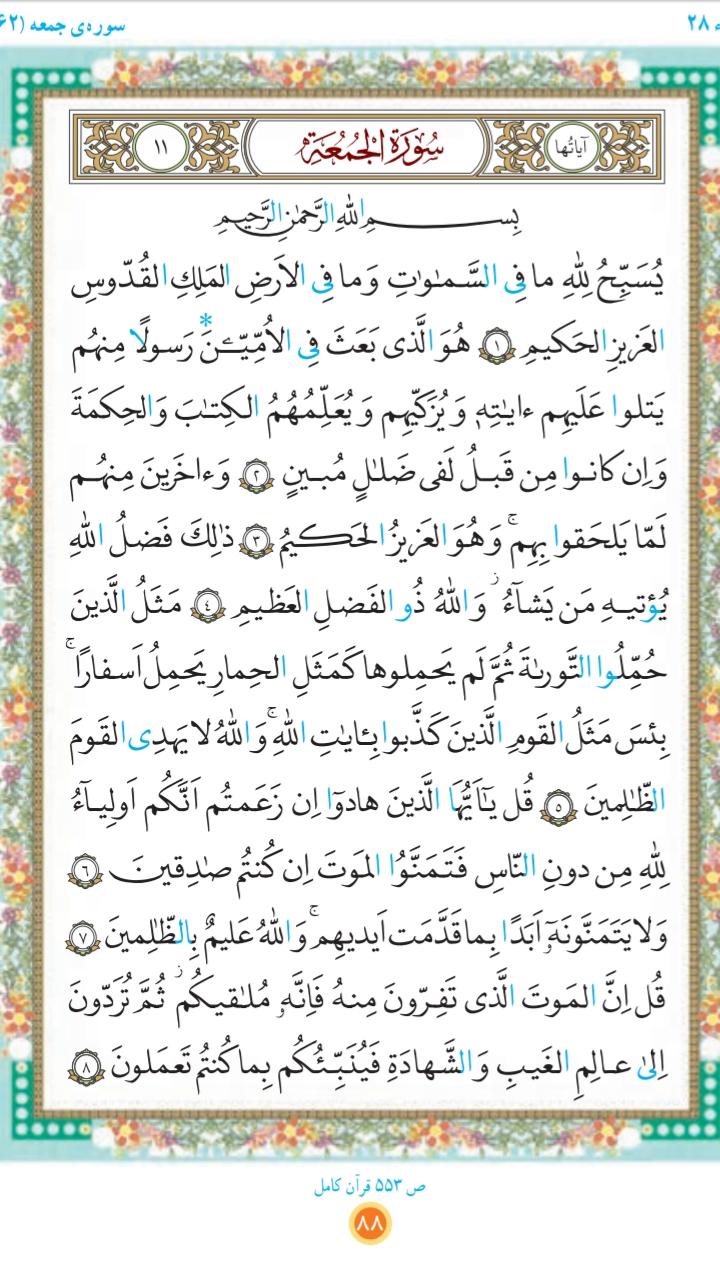 سوره‌ی جمعه (۶۲ ۲۸
آیاتُها سُورَةُ الجُمُعَة ۱۱
بِسمِ اللهِ الرَّحمٰنِ الرَّحیمِ
یُسَبِّحُ لِلّٰهِ ما فِی السَّمٰوٰتِ وَ ما فِی الاَرضِ المَلِکِ القُدّوسِ
العَزیزِ الحَکیمِ ﴿۱﴾ هُوَ الَّذی بَعَثَ فِی الاُمِّیّـۧنَ* رَسولًا مِنهُم
یَتلوا عَلَیهِم ءایٰتِهٖ وَ یُزَکّیهِم وَ یُعَلِّمُهُمُ الکِتٰبَ وَ الحِکمَةَ
وَ اِن کانوا مِن قَبلُ لَفی ضَلٰلٍ مُبینٍ ﴿۲﴾ وَ ءاخَرینَ مِنهُم
لَمّا یَلحَقوا بِهِمۚ وَ هُوَ العَزیزُ الحَکیمُ ﴿۳﴾ ذٰلِکَ فَضلُ اللهِ
یُؤتیهِ مَن یَشآءُۗ وَ اللهُ ذُو الفَضلِ العَظیمِ ﴿۴﴾ مَثَلُ الَّذینَ
حُمِّلُوا التَّورىٰةَ ثُمَّ لَم یَحمِلوها کَمَثَلِ الحِمارِ یَحمِلُ اَسفارًاۚ
بِئسَ مَثَلُ القَومِ الَّذینَ کَذَّبوا بِـٔایٰتِ اللهِۚ وَ اللهُ لا یَهدِی القَومَ
الظّٰلِمینَ ﴿۵﴾ قُل یٰٓاَیُّهَا الَّذینَ هادوٓا اِن زَعَمتُم اَنَّکُم اَولِیآءُ
لِلّٰهِ مِن دونِ النّاسِ فَتَمَنَّوُا المَوتَ اِن کُنتُم صٰدِقینَ ﴿۶﴾
وَ لا یَتَمَنَّونَهٗٓ اَبَدًا بِما قَدَّمَت اَیدیهِمۚ وَ اللهُ عَلیمٌ بِالظّٰلِمینَ ﴿۷﴾
قُل اِنَّ المَوتَ الَّذی تَفِرّونَ مِنهُ فَاِنَّهٗ مُلٰقیکُمۖ ثُمَّ تُرَدّونَ
اِلیٰ عالِمِ الغَیبِ وَ الشَّهادَةِ فَیُنَبِّئُکُم بِما کُنتُم تَعمَلونَ ﴿۸﴾
ص ۵۵۳ قرآن کامل
۸۸